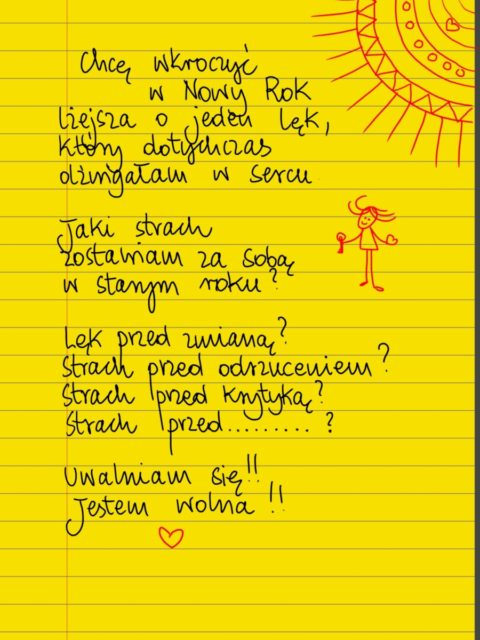 Chcę wkroczyć
w Nowy Rok
lżejsza o jeden lęk,
który dotychczas
dźwigałam w sercu
Jaki strach
zostawiam za sobą
w starym roku?
Lęk przed zmianą?
Strach przed odrzuceniem?
Strach przed krytyką?
Strach przed......... ?
Uwalniam się!!
Jestem wolna!!